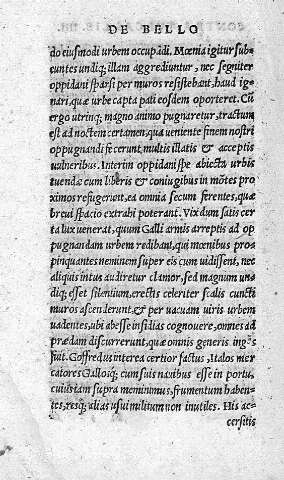 DE BELLO
do eiusmodi urbem occupādi. Mœnia igitur sub=
euntes undiq; illam aggrediuntur, nec segniter
oppidani sparsi per muros resistebant, haud ign
nari, quæ urbe capta pati eosdem oporteret. Cū
ergo utrinq; magno animo pugnaretur, tractum
est ad noctem certamen, quæ ueniente finem nostri
oppugnandi fecerunt, multis illatis & acceptis
uulneribus. Interim oppidani spe abiecta urbis
tuendæ cum liberis & coniugibus in mōtes pro
ximos refugerent, ea omnia secum ferentes, quæ
breui spacio extrahi poterant. Vix dum satis cer
ta lux uenerat, quum Galli armis arreptis ad op
pugnandam urbem redibant, qui mœnibus pro=
pinquantes neminem super eis cum uidissent, nec
aliquis intus audiretur clamor, sed magnum un=
diq; esset silentium, erectis celeriter scalis cuncti
muros ascenderunt, & per uacuam uiris urbem
uadentes, ubi abesse insidias cognouere, omnes ad
prædam discurrerunt, quæ omnis generis ingēs
fuit. Goffredus interea certior factus, Italos mer
catores Gallosq; cum suis nauibus esse in portu,
cuius iam supra meminimus, frumentum haben=
tes, resq; alias usui militum non inutiles. His ac=
cersitis